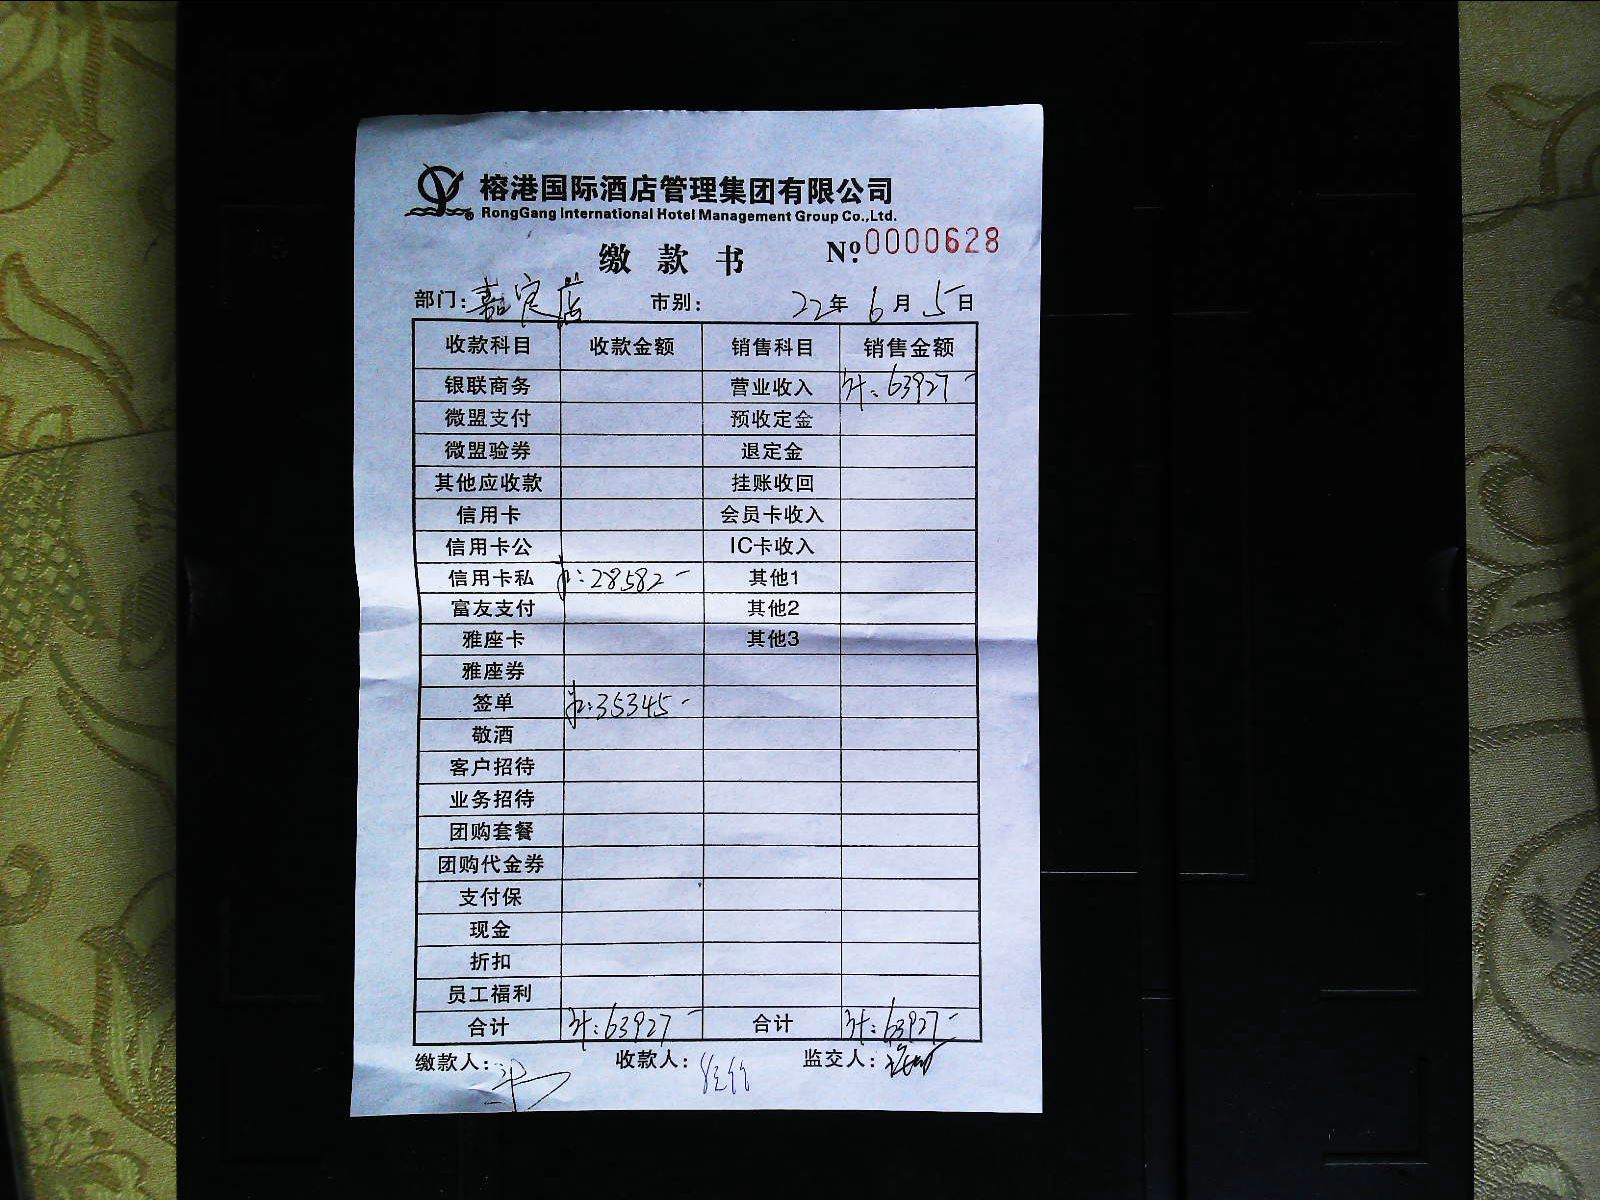 榕港国际酒店管理集团有限公司
RongGang International Hotel Management Group Co.,Ltd.
缴款书 Nº:0000628
部门:嘉定店 市别: 22年6月5日
收款科目 收款金额 销售科目 销售金额
银联商务 营业收入 计:63927-
微盟支付 预收定金
微盟验券 退定金
其他应收款 挂账收回
信用卡 会员卡收入
信用卡公 IC卡收入
信用卡私 28582- 其他1
富友支付 其他2
雅座卡 其他3
雅座券
签单 35345-
敬酒
客户招待
业务招待
团购套餐
团购代金券
支付保
现金
折扣
员工福利
合计 计:63927- 合计 计:63927-
缴款人: 收款人: 监交人: